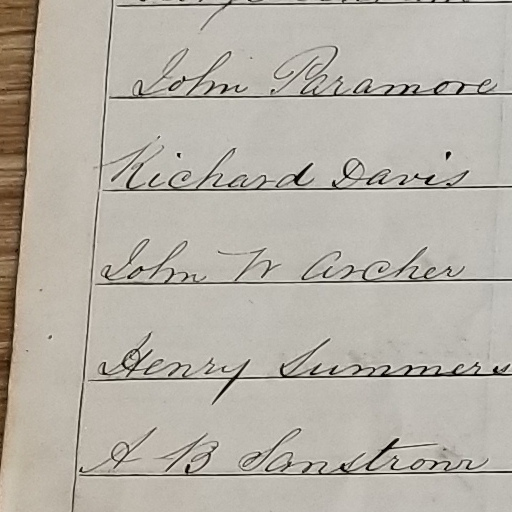 John Paramore
Richard Davis
John W Archer
Henry Summers
A B